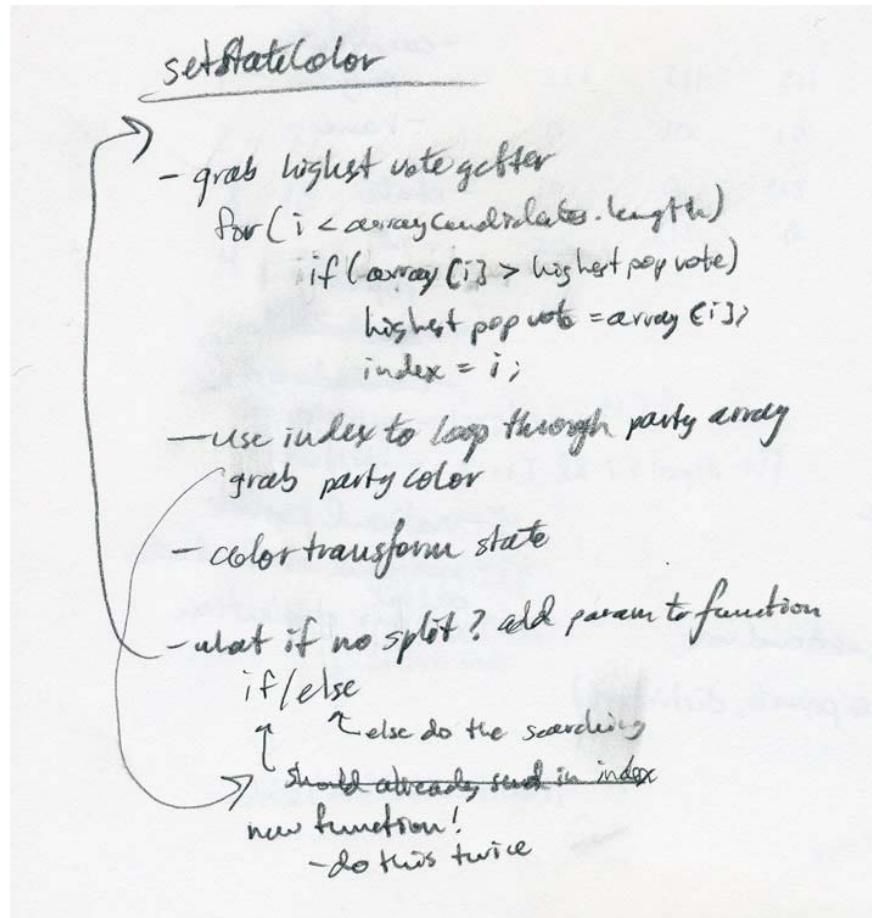 setStateColor
- grab highest vote getter
for (i < arrayCandidates.length)
if (array [i] > highest pop vote)
highest pop vote = array [i];
index = i;
- use index to loop through party array
grab party color
- color transform state
- what if no split? add param to function
if/else
else do the searching
should already send in index
new function!
- do this twice